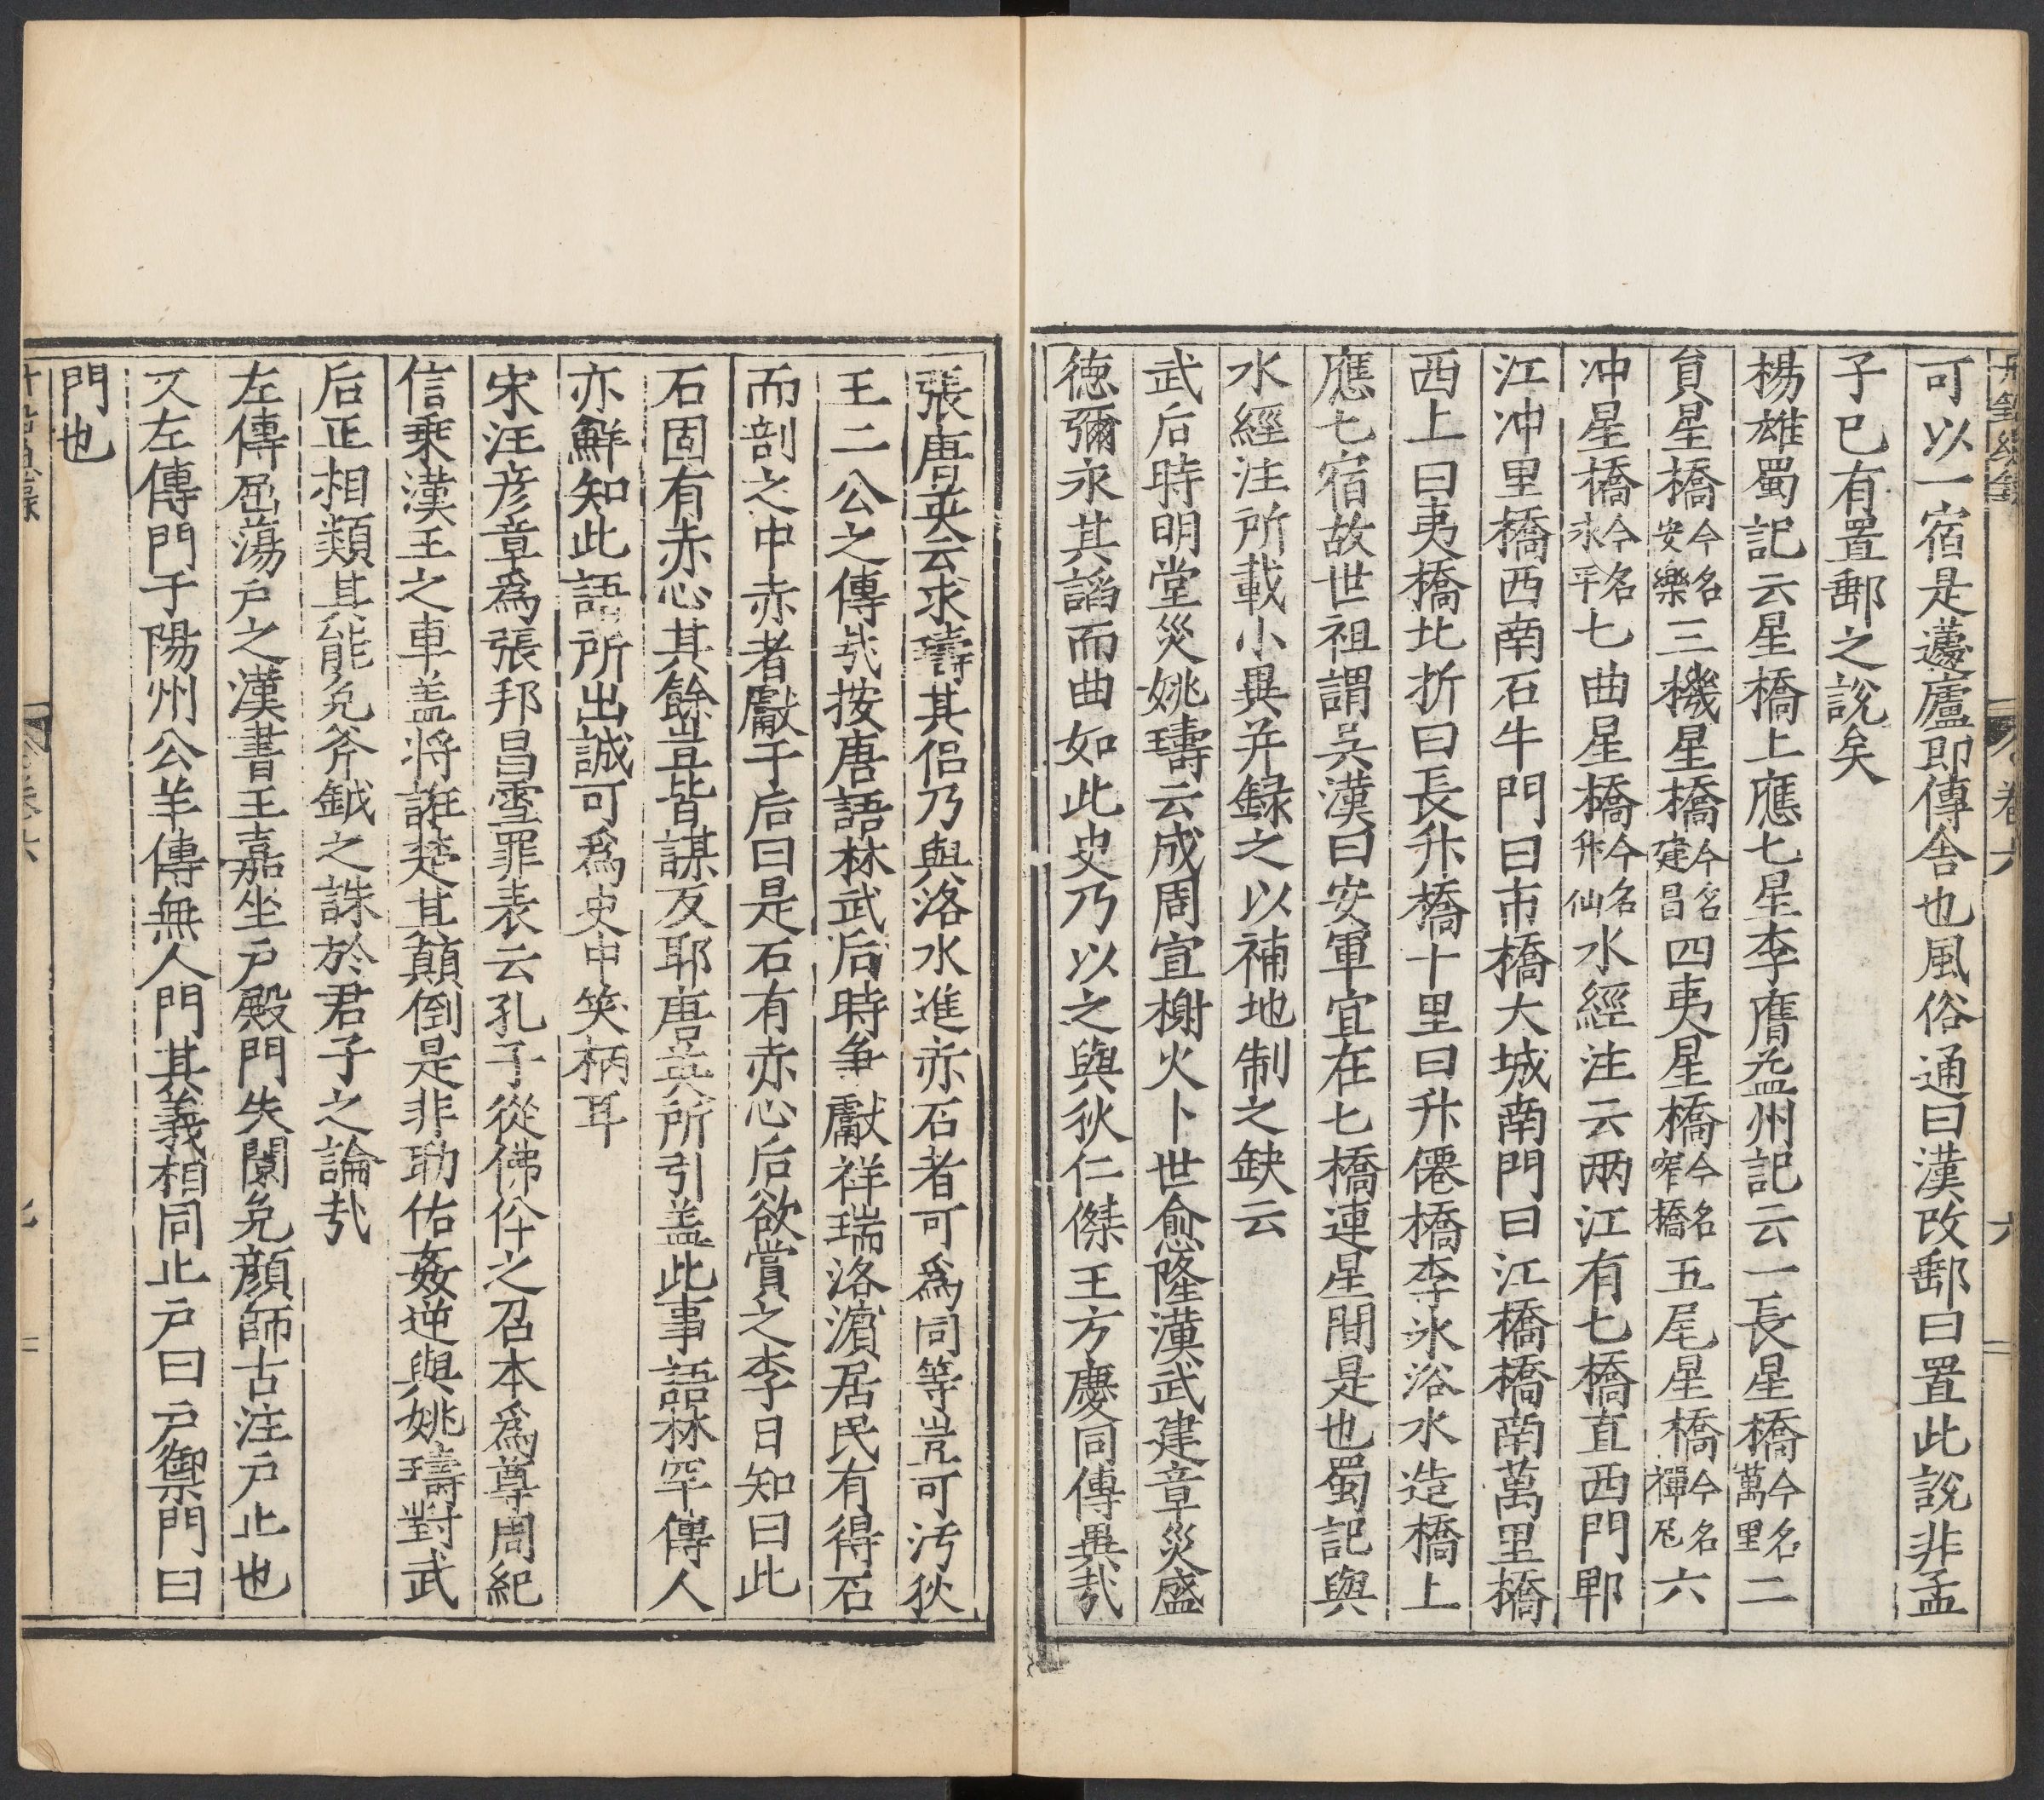 可以一宿是蘧廬即傳舍也風俗通曰漢改郵曰置此說非孟
子巳有置郵之說矣
楊雄蜀記云星橋上應七星李膺益州記云一長星橋今名萬里二
負星橋今名安樂三機星橋今名建昌四夷星橋今名窄橋五尾星橋今名禪尼六
冲星橋今名永平七曲星橋今名升仙水經注云兩江有七橋直西門郫
江冲里橋西南石牛門曰市橋大城南門曰江橋橋南萬里橋
西上曰夷橋北折曰長升橋十里曰升僊橋李氷浴水造橋上
應七宿故世祖謂吳漢曰安軍宜在七橋連星間是也蜀記與
水經注所載小異并録之以補地制之缺云
武后時明堂災姚璹云成周宣榭火卜世愈隆漢武建章災盛
徳彌永其謟而曲如此史乃以之與狄仁傑王方慶同傳異㢤
張唐英云求璹其侣乃與洛水進赤石者可爲同等豈可汚狄
王二公之傳㢤按唐語林武后時争獻祥瑞洛濵居民有得石
而剖之中赤者獻于后曰是石有赤心后欲賞之李日知曰此
石固有赤心其餘豈皆謀反耶唐英所引盖此事語林罕傳人
亦鮮知此語所出誠可爲史中笑柄耳
宋汪彦章爲張邦昌雪罪表云孔子從佛仐之召本爲尊周紀
信乗漢王之車盖将誑楚其顛倒是非助佑姦逆與姚璹對武
后正相類其能免斧鉞之誅於君子之論㢤
左傳屈蕩户之漢書王嘉坐户殿門失闌免顔師古注户止也
又左傳門于陽州公羊傳無人門其義相同止户曰户禦門曰
門也